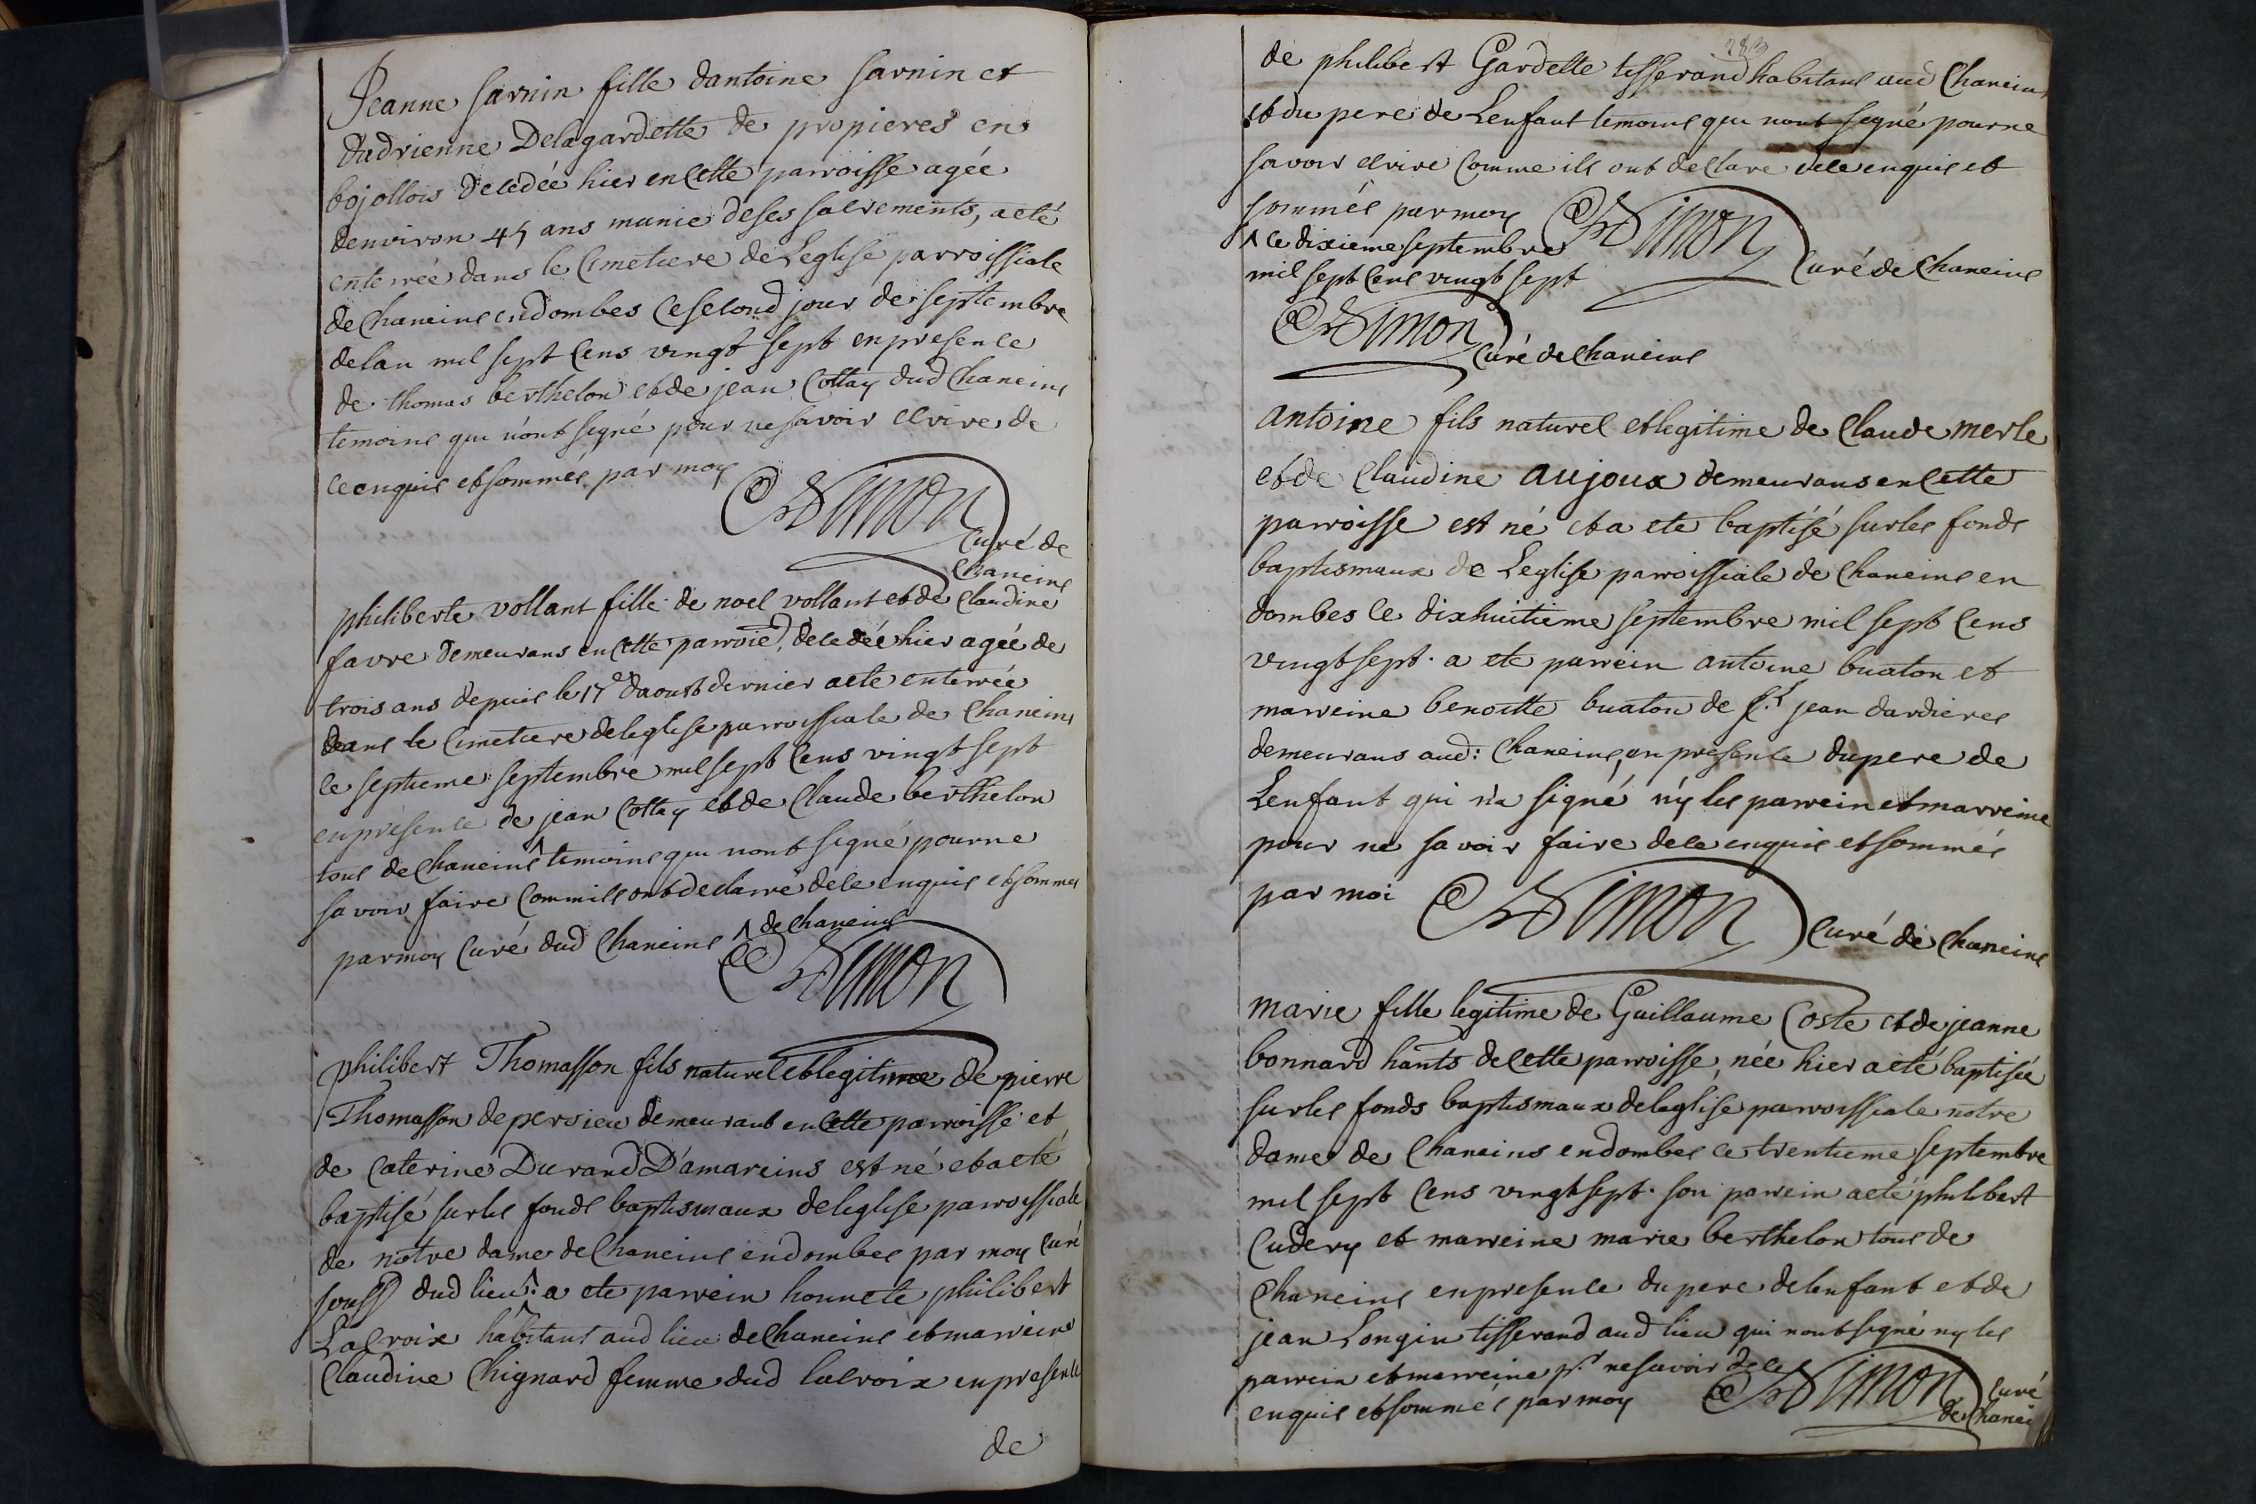 Jeanne sarnin fille dantoine sarnin et
dadrienne Delagardette de propieres en
bojollois decedée hier en cette parroisse agée
denviron 45 ans munie deses sacrements, a eté
enterrée dans le cimetiere de Leglise parroissiale
de chaneins en dombes ce second jour de septembre
de lan mil sept cens vingt sept en presence
de thomas berthelon et de jean Cottay dud chaneins
temoins qui n'ont signé pour ne savoir ecrire de
ce enquis et sommés par moy
Simon
Curé de
chaneins
philiberte vollant fille de noel vollant et de claudine
favre demeurans en cette parroisse, decedée hier agée de
trois ans depuis le 17e daoust dernier a eté enterrée
dans le cimetiere de leglise parroissiale de chaneins
ce septieme septembre mil sept cens vingt sept
en présence de jean Cottay et de claude berthelon
tous de chaneins ^ temoins qui n'ont signé pour ne
savoir faire comm ils ont declarré de ce enquis et sommés
par moy Curé dud chaneins ^ de chaneins
Simon
philibert Thomasson fils naturel et legitime de pierre
Thomasson de persieu demeurant en cette parroisse et
de Caterine Durand D'amareins est né et a eté
baptisé sur les fonds baptismaux de leglise parroissiale
de notre dame de Chaneins en dombes par moy curé
souss dud lieu ^. a ete parrein honnete philibert
Lacroix habitant aud lieu de chaneins et marreine
Claudine Chignard femme dud lacroix en presence
de
283
de philibert Gardette tisserand habitans aud Chaneins
et du pere de Lenfant temoins qui n'ont signé pour ne
savoir ecrire comme ils ont declare de ce enquis et
sommés par moy
Simon
Curé de Chaneins
^ ce dixieme septembre
mil sept cens vingt sept
Simon
curé de chaneins
antoine fils naturel et legitime de Claude merle
et de Claudine aujoux demeurans en cette
parroisse est né et a ete baptisé sur les fonds
baptismaux de Leglise parroissiale de chaneins en
dombes le dixhuitieme septembre mil sept cens
vingt sept. a ete parrein antoine buaton et
marreine benoitte buaton de St jean dardieres
demeurans aud: chaneins, en presence du pere de
Lenfant qui n'a signé n'y les parrein et marreine
pour ne savoir faire de ce enquis et sommés
par moi
Simon
Curé de chaneins
marie fille legitime de Guillaume Coste et de jeanne
bonnard hants de cette parroisse, née hier a eté baptisée
sur les fonds baptismaux de leglise parroissiale notre
dame de chaneins en dombes ce trentieme septembre
mil sept cens vingt sept. son parrein a eté philibert
Cudery et marreine marie berthelon tous de
chaneins en presence du pere de lenfant et de
jean Longin tisserand aud lieu qui n'ont signé ny les
parrein et marreine pr ne savoir de ce
enquis et sommés par moy
Simon
curé
de chanei